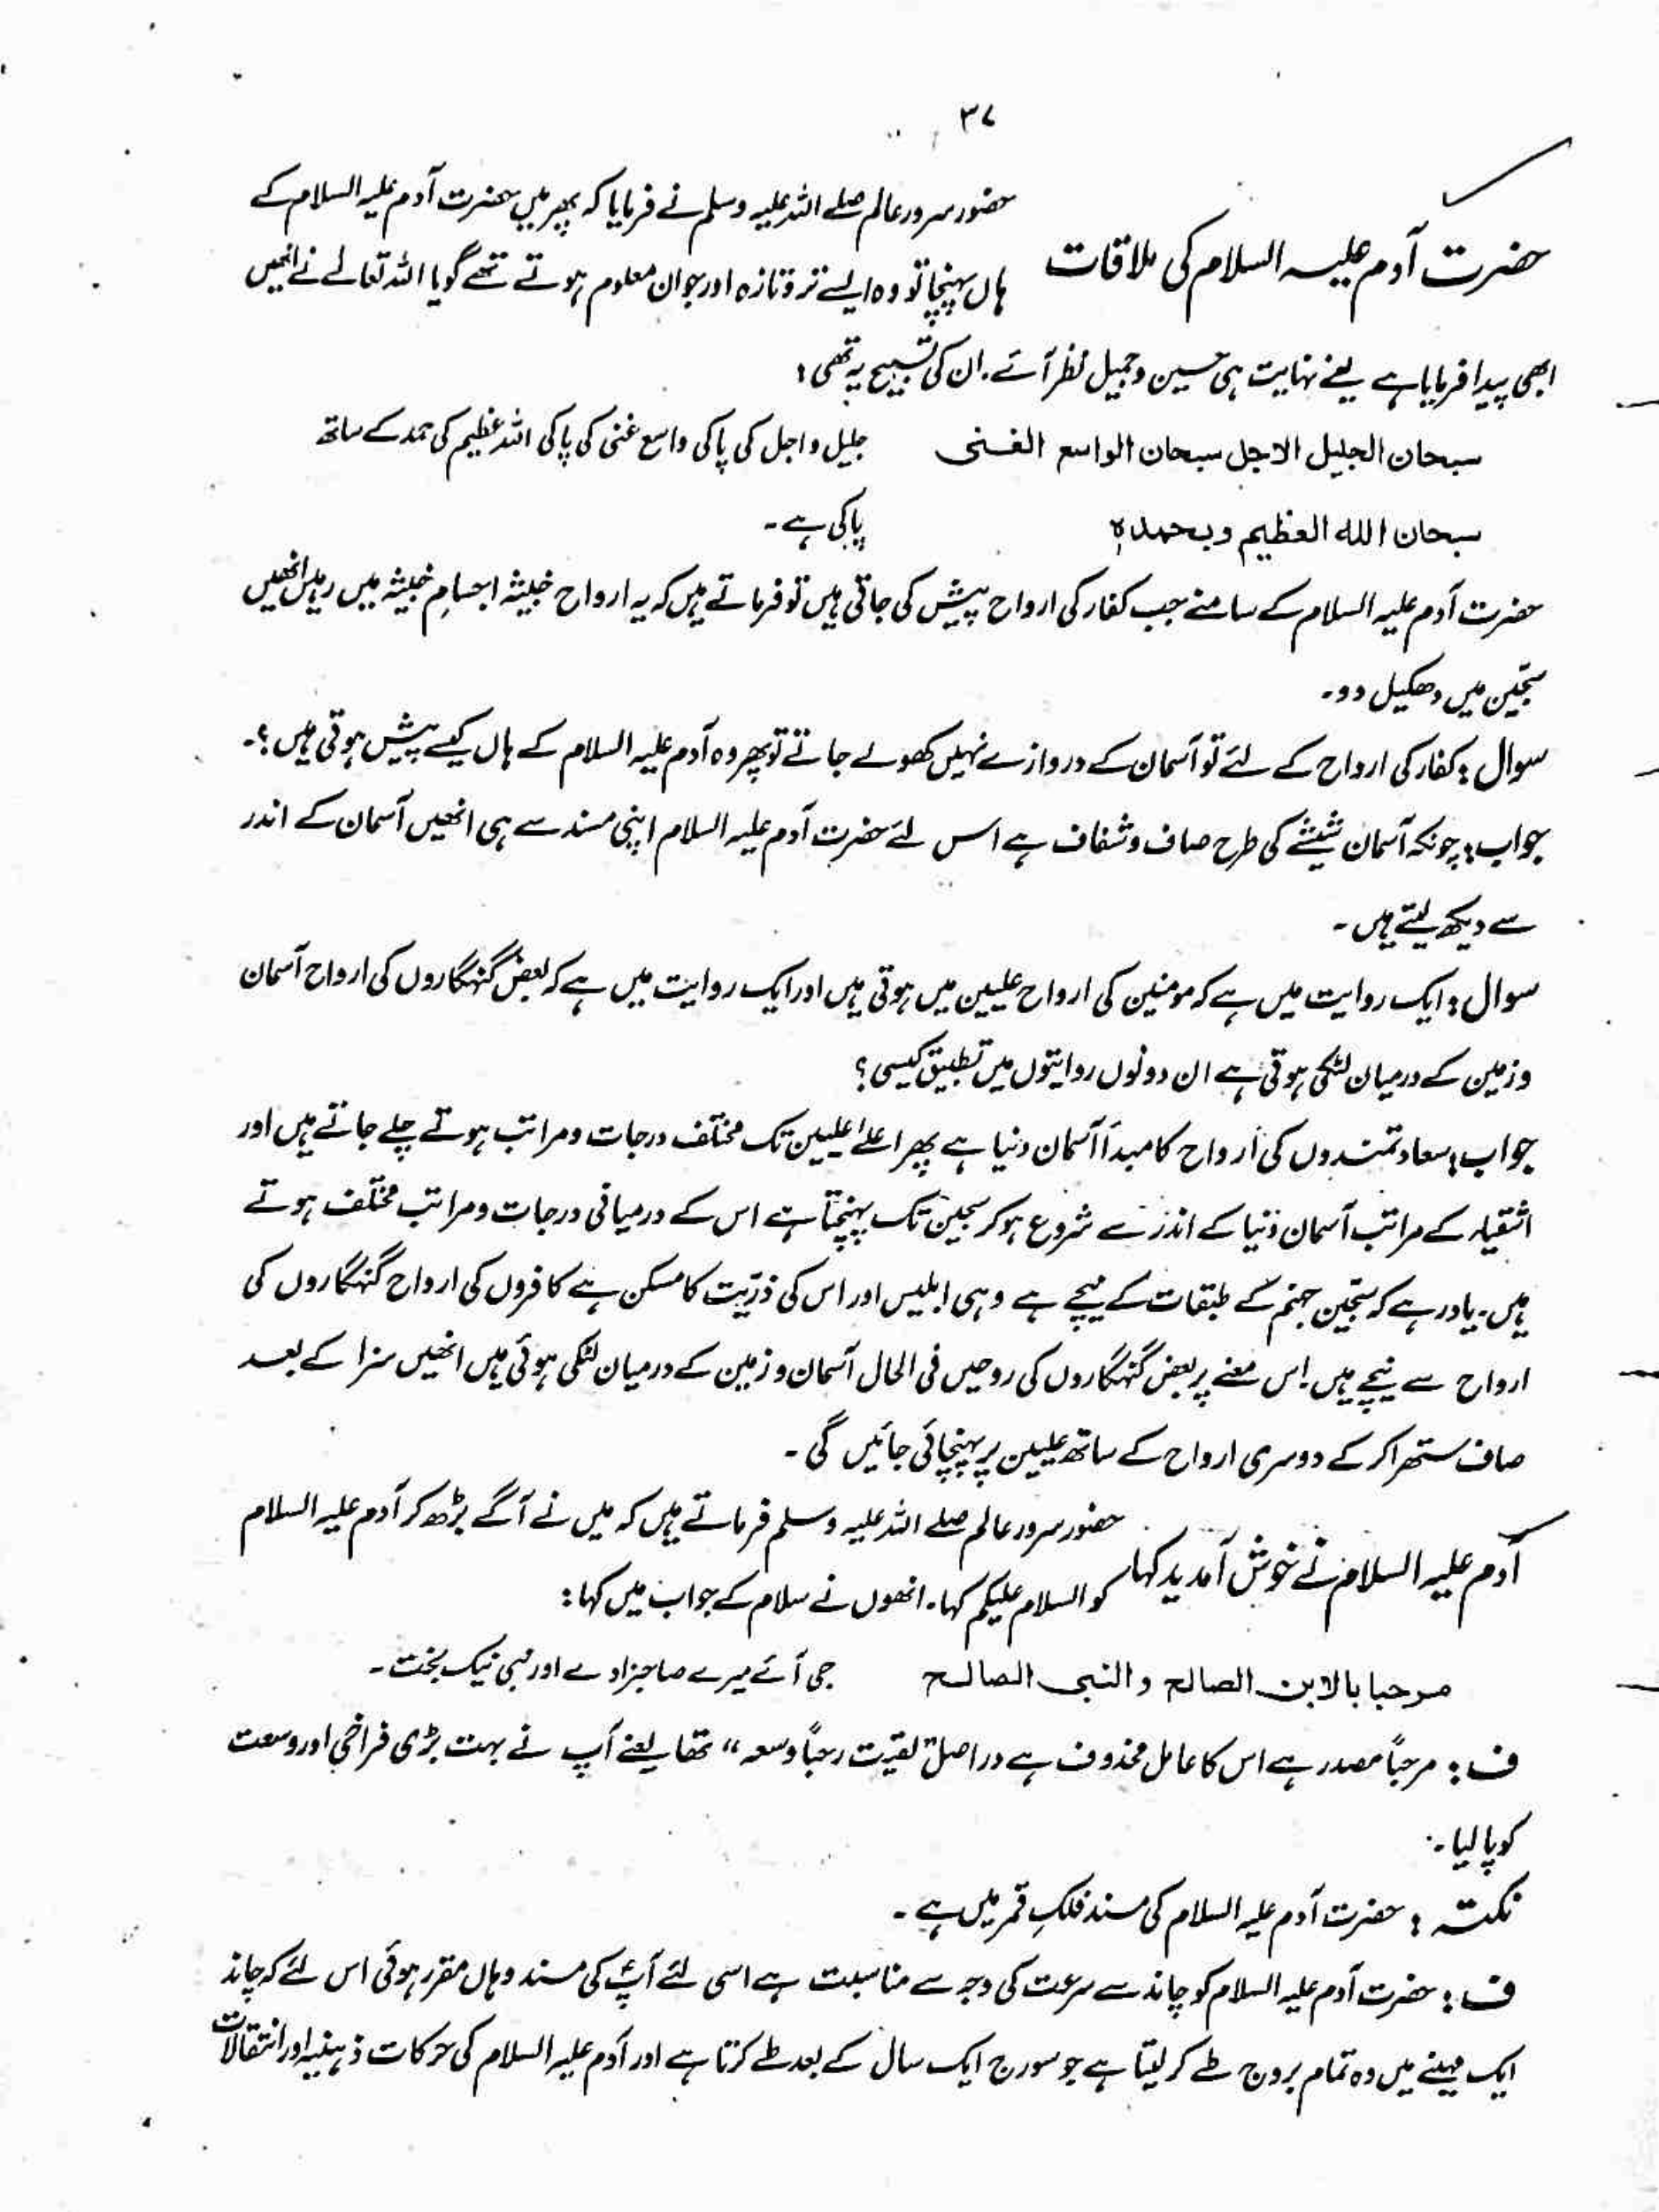 ۳۷
حضرت آدم علیہ السلام کی ملاقات
حضور سرور عالم صلے اللہ علیہ وسلم نے فرمایا کہ پھر میں حضرت آدم علیہ السلام کے
ہاں پہنچا تو وہ ایسے تر و تازہ اور جوان معلوم ہوتے تھے گویا اللہ تعالےٰ نے انھیں
ابھی پیدا فرمایا ہے یعنے نہایت ہی حسین و جمیل نظر آئے۔ ان کی تسبیح یہ تھی:
سبحان الجلیل الاجل سبحان الواسع الغنی
سبحان اللہ العظیم وبحمدہٖ
جلیل و اجل کی پاکی واسع غنی کی پاکی اللہ عظیم کی حمد کے ساتھ
پاکی ہے۔
حضرت آدم علیہ السلام کے سامنے جب کفار کی ارواح پیش کی جاتی ہیں تو فرماتے ہیں کہ یہ ارواح خبیثہ اجسامِ خبیثہ میں رہیں انھیں
سجّین میں دھکیل دو۔
سوال: کفار کی ارواح کے لئے تو آسمان کے دروازے نہیں کھولے جاتے تو پھر وہ آدم علیہ السلام کے ہاں کیسے پیش ہوتی ہیں؟۔
جواب: چونکہ آسمان شیشے کی طرح صاف و شفاف ہے اس لئے حضرت آدم علیہ السلام اپنی مسند سے ہی انھیں آسمان کے اندر
سے دیکھ لیتے ہیں۔
سوال: ایک روایت میں ہے کہ مومنین کی ارواح علیین میں ہوتی ہیں اور ایک روایت میں ہے کہ بعض گنہگاروں کی ارواح آسمان
و زمین کے درمیان لٹکی ہوتی ہے ان دونوں روایتوں میں تطبیق کیسی؟
جواب: سعادتمندوں کی ارواح کا مبدأ آسمان دنیا ہے پھر اعلےٰ علیین تک مختلف درجات و مراتب ہوتے چلے جاتے ہیں اور
اشقیاء کے مراتب آسمان دنیا کے اندر سے شروع ہو کر سجین تک پہنچتا ہے اس کے درمیانی درجات و مراتب مختلف ہوتے
ہیں۔ یاد رہے کہ سجّین جہنم کے طبقات کے نیچے ہے وہی ابلیس اور اس کی ذرّیت کا مسکن ہے کافروں کی ارواح گنہگاروں کی
ارواح سے نیچے ہیں۔ اس معنے پر بعض گنہگاروں کی روحیں فی الحال آسمان و زمین کے درمیان لٹکی ہوئی ہیں انھیں سزا کے بعد
صاف ستھرا کر کے دوسری ارواح کے ساتھ علیین پر پہنچائی جائیں گی۔
آدم علیہ السلام نے خوش آمدید کہا
حضور سرور عالم صلے اللہ علیہ وسلم فرماتے ہیں کہ میں نے آگے بڑھ کر آدم علیہ السلام
کو السلام علیکم کہا۔ انھوں نے سلام کے جواب میں کہا:
مرحبا بالابن الصالح والنبی الصالح
جی آئے میرے صاحبزادے اور نبی نیک بخت۔
ف: مرحباً مصدر ہے اس کا عامل محذوف ہے دراصل "لقیت رحباً وسعہ" تھا یعنے آپ نے بہت بڑی فراخی اور وسعت
کو پا لیا۔
نکتہ: حضرت آدم علیہ السلام کی مسند فلکِ قمر میں ہے۔
ف: حضرت آدم علیہ السلام کو چاند سے سرعت کی وجہ سے مناسبت ہے اسی لئے آپؑ کی مسند وہاں مقرر ہوئی اس لئے کہ چاند
ایک مہینے میں وہ تمام بروج طے کر لیتا ہے جو سورج ایک سال کے بعد طے کرتا ہے اور آدم علیہ السلام کی حرکات ذہنیہ اور انتقالات